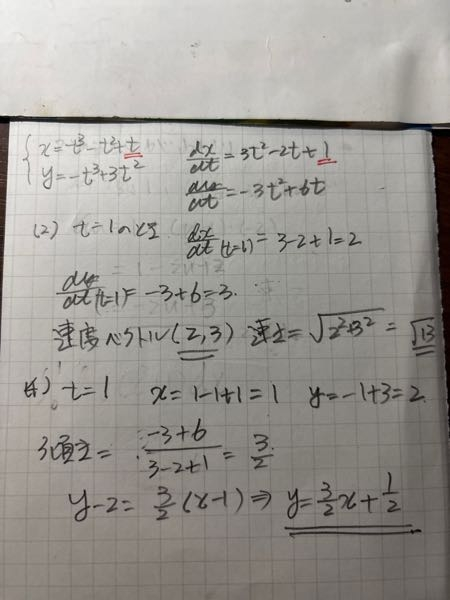 x=t³-t²+t dx/dt=3t²-2t+1
y=-t³+3t² dy/dt=-3t²+6t
(2) t=1のとき dx/dt(t=1)=3-2+1=2
dy/dt(t=1)=-3+6=3.
速度ベクトル(2,3) 速さ=√2²+3²=√13
t=1 x=1-1+1=1 y=-1+3=2
傾き= -3+6/3-2+1=3/2
y-2=3/2(x-1)⇒y=3/2x+1/2